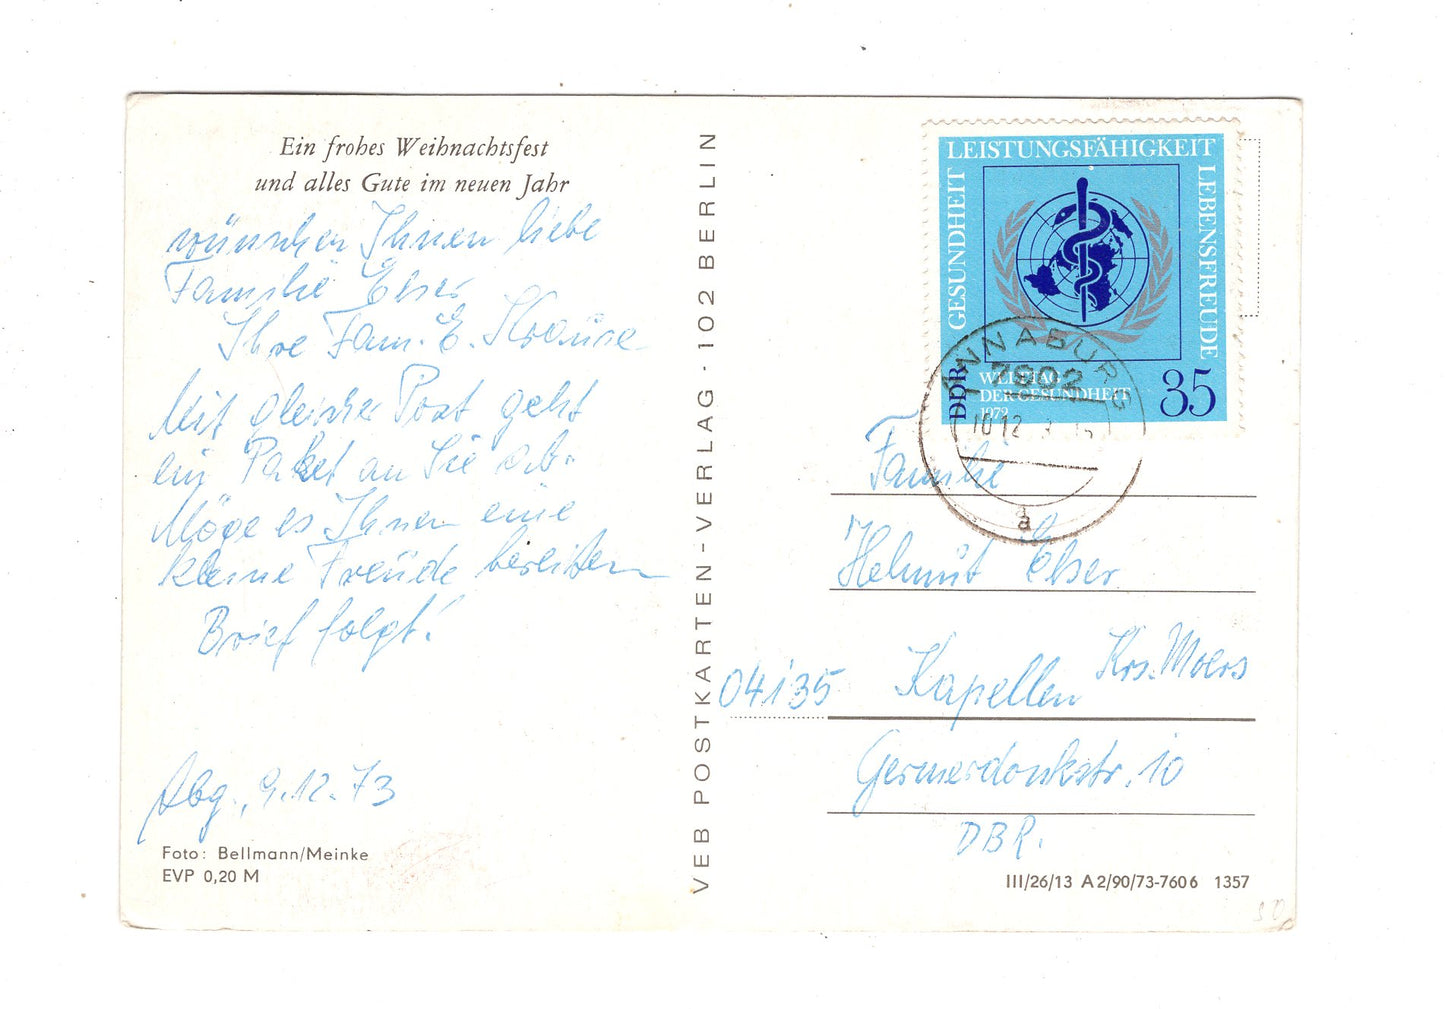 Ein frohes Weihnachtsfest
und alles Gute im neuen Jahr
wünschen Ihnen liebe
Familie Elser
Ihre Fam. E. Krause
Mit gleicher Post geht
ein Paket an Sie ab.
Möge es Ihnen eine
kleine Freude bereiten
Brief folgt!
Abg., 9.12.73
Foto: Bellmann/Meinke
EVP 0,20 M
VEB POSTKARTEN-VERLAG · 102 BERLIN
LEISTUNGSFÄHIGKEIT
GESUNDHEIT
LEBENSFREUDE
DDR
WELTTAG
DER GESUNDHEIT
1972
35
ANNABURG
7902
10.12
a
Familie
Helmut Elser
04135 Kapellen Krs. Moers
Germendonkstr. 10
DBR.
III/26/13 A 2/90/73-7606 1357